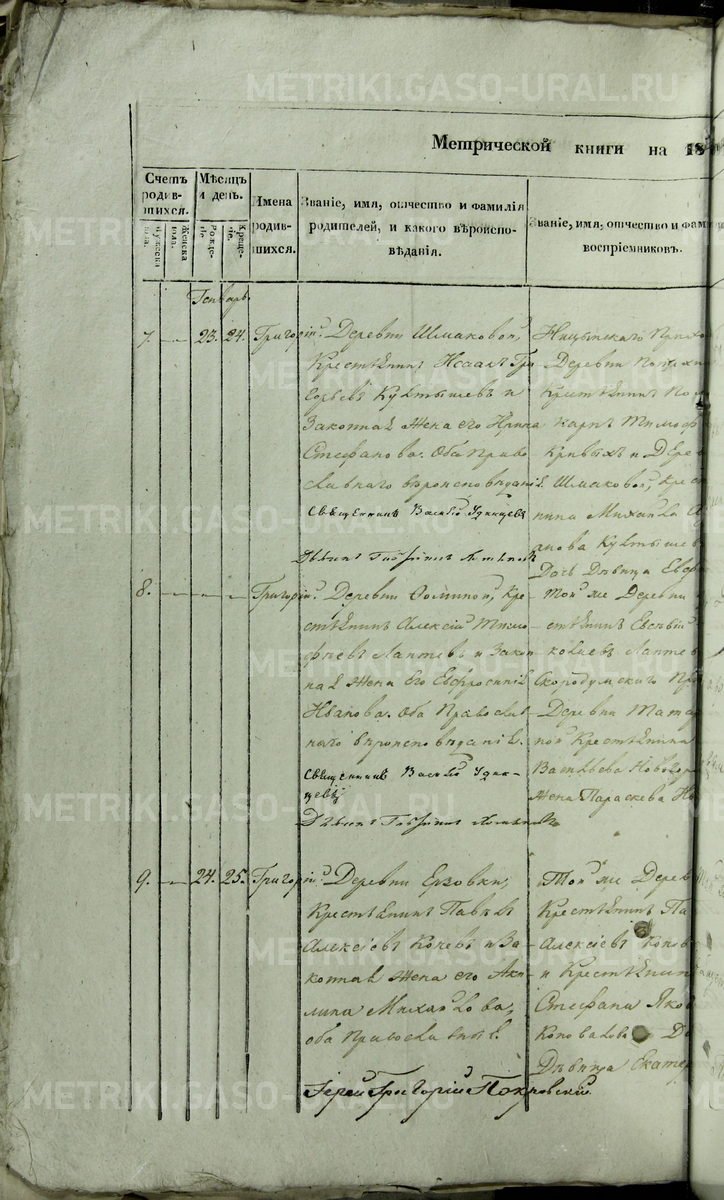 METRIKI.GASO-URAL.RU
Метрической книги на 18
Счетъ родив-шихся.
Мужеска пола.
Женска пола.
Мѣсяцъ и день.
Рожде-
Креще-
Имена родив-шихся.
Званіе, имя, отчество и фамилія родителей, и какого вѣроиспо-вѣданія.
Званіе, имя, отчество и фами
воспріемниковъ.
Генварь
7. 23. 24. Григорій. Деревни Шмаковой,
Крестьянинъ Исаакъ
Култышевъ и
Законная жена его Ирина
Стефанова. Оба Право
славнаго вѣроисповѣданія.
Священникъ Василій Удинцевъ
Ницынскаго Прихо
Деревни
Крестьянинъ По
карпъ Тимоф
Кривыхъ и Дерев
Шмаковой, Крес
нина Михайла
анова Култышев
Дочь Дѣвица Евф
8. Григорій. Деревни Фоминой, Кре
стьянинъ Алексій Тимо
феевъ Лаптевъ и Закон
ная жена его Евфросинія
Иванова. Оба Православ
наго вѣроисповѣданія.
Священникъ Василій Удин-
цевъ
Той же Деревни
стьянинъ Евсевій
ковлевъ Лаптев
Скородумскаго Пр
Деревни
ной Крестьянина
Васильева Новогор
жена Параскева
9. 24. 25. Григорій. Деревни Ерзовки,
Крестьянинъ Павелъ
Алексіевъ Коневъ и За
конная жена его Аки
лина Михайлова,
оба Православные.
Іерей Григорій Покровскій.
Той же Дерев
Крестьянинъ Па
Алексіевъ Конов
и Крестьянина
Стефана Яков
Коновалова До
Дѣвица Екатер